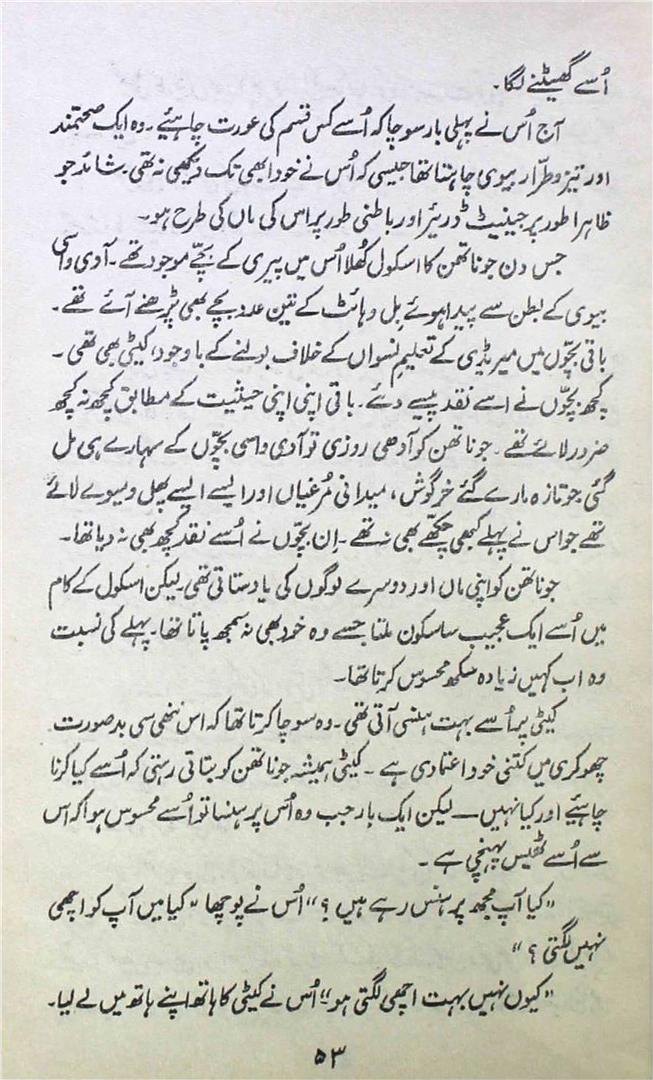 اُسے گھیٹنے لگا۔
آج اُس نے پہلی بار سوچا کہ اُسے کس قسم کی عورت چاہئیے۔ وہ ایک صحتمند
اور تیز و طرّار بیوی چاہتا تھا جیسی کہ اُس نے خود ابھی تک دیکھی نہ تھی۔ شائد جو
ظاہرا طور پر جینیٹ ڈریئر اور باطنی طور پر اس کی ماں کی طرح ہو۔
جس دن جوناتھن کا اسکول کُھلا اُس میں پیری کے بچّے موجود تھے۔ آدی واسی
بیوی کے بطن سے پیدا ہوئے بل وہائٹ کے تین عدد بچے بھی پڑھنے آئے تھے۔
باقی بچّوں میں میر بڈی کے تعلیمِ نسواں کے خلاف بولنے کے باوجود، کیٹی بھی تھی۔
کچھ بچّوں نے اسے نقد پیسے دئے۔ باقی اپنی اپنی حیثیت کے مطابق کچھ نہ کچھ
ضرور لائے تھے۔ جوناتھن کو آدھی روزی تو آدی واسی بچّوں کے سہارے ہی مل
گئی جو تازہ مارے گئے خرگوش، میدانی مُرغیاں اور ایسے ایسے پھل و میوے لائے
تھے جو اس نے پہلے کبھی چکھّے بھی نہ تھے۔ اِن بچّوں نے اُسے نقد کچھ بھی نہ دیا تھا۔
جوناتھن کو اپنی ماں اور دوسرے لوگوں کی یاد ستاتی تھی۔ لیکن اسکول کے کام
میں اُسے ایک عجیب سا سکون ملتا جسے وہ خود بھی نہ سمجھ پاتا تھا۔ پہلے کی نسبت
وہ اب کہیں زیادہ سکھ محسوس کرتا تھا۔
کیٹی پر اُسے بہت ہنسی آتی تھی۔ وہ سوچا کرتا تھا کہ اس ننھی سی بدصورت
چھوکری میں کتنی خود اعتمادی ہے۔ کیٹی ہمیشہ جوناتھن کو بتاتی رہتی کہ اُسے کیا کرنا
چاہئیے اور کیا نہیں — لیکن ایک بار جب وہ اُس پر ہنسا تو اُسے محسوس ہوا کہ اس
سے اُسے ٹھیس پہنچی ہے۔
”کیا آپ مجھ پر ہنس رہے ہیں؟“ اُس نے پوچھا ”کیا میں آپ کو اچھی
نہیں لگتی؟“
”کیوں نہیں بہت اچھی لگتی ہو“ اُس نے کیٹی کا ہاتھ اپنے ہاتھ میں لے لیا۔
۵۳